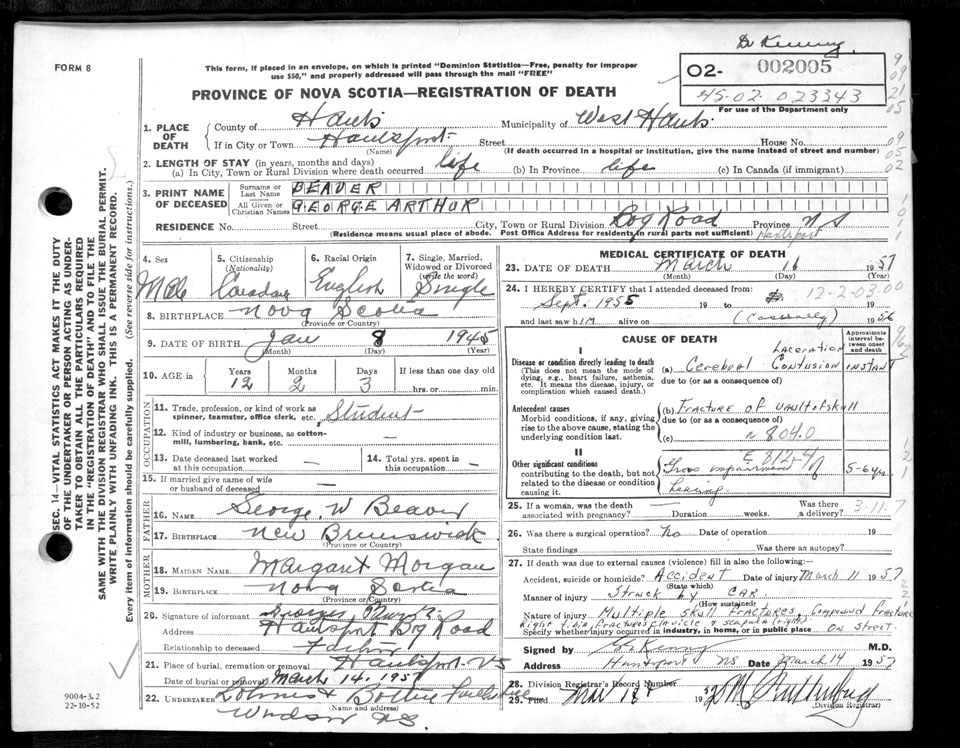 Dr Kenny
FORM 8
This form, if placed in an envelope, on which is printed "Dominion Statistics—Free, penalty for improper
use $50," and properly addressed will pass through the mail "FREE"
O2- 002005
45-02-023343
For use of the Department only
PROVINCE OF NOVA SCOTIA—REGISTRATION OF DEATH
1. PLACE OF DEATH County of Hants Municipality of West Hants
If in City or Town Hantsport Street House No.
(Name) (If death occurred in a hospital or institution, give the name instead of street and number)
2. LENGTH OF STAY (in years, months and days)
(a) In City, Town or Rural Division where death occurred life (b) In Province life (c) In Canada (if immigrant)
3. PRINT NAME OF DECEASED Surname or Last Name BEAVER
All Given or Christian Names GEORGE ARTHUR
RESIDENCE No. Street City, Town or Rural Division Bog Road Province N S
(Residence means usual place of abode. Post Office Address for residents in rural parts not sufficient) Hantsport
4. Sex Male
5. Citizenship (Nationality) Canadian
6. Racial Origin English
7. Single, Married, Widowed or Divorced (write the word) Single
8. BIRTHPLACE Nova Scotia
(Province or Country)
9. DATE OF BIRTH Jan 8 1945
(Month) (Day) (Year)
10. AGE in Years Months Days If less than one day old
12 2 3 hrs. or min.
OCCUPATION
11. Trade, profession, or kind of work as spinner, teamster, office clerk, etc. Student
12. Kind of industry or business, as cotton-mill, lumbering, bank, etc. —
13. Date deceased last worked at this occupation —
14. Total yrs. spent in this occupation —
15. If married give name of wife or husband of deceased —
FATHER
16. NAME George W Beaver
17. BIRTHPLACE New Brunswick
(Province or Country)
MOTHER
18. MAIDEN NAME Margaret Morgan
19. BIRTHPLACE Nova Scotia
(Province or Country)
20. Signature of informant George
Address Hantsport Bog Road
Relationship to deceased Father
21. Place of burial, cremation or removal Hantsport NS
Date of burial or removal March 14, 1957
22. UNDERTAKER
(Name and address)
Windsor NS
9004-3.2
22-10-52
SEC. 14—VITAL STATISTICS ACT MAKES IT THE DUTY
OF THE UNDERTAKER OR PERSON ACTING AS UNDER-
TAKER TO OBTAIN ALL THE PARTICULARS REQUIRED
IN THE "REGISTRATION OF DEATH" AND TO FILE THE
SAME WITH THE DIVISION REGISTRAR WHO SHALL ISSUE THE BURIAL PERMIT.
WRITE PLAINLY WITH UNFADING INK. THIS IS A PERMANENT RECORD.
Every item of information should be carefully supplied. (See reverse side for instructions.)
MEDICAL CERTIFICATE OF DEATH
23. DATE OF DEATH March 11 1957
(Month) (Day) (Year)
24. I HEREBY CERTIFY that I attended deceased from: 12-2-03-00
Sept. 1955 19 to 19
and last saw him alive on (Casually) 1956
CAUSE OF DEATH
Approximate interval between onset and death
I
Disease or condition directly leading to death
(This does not mean the mode of dying, e.g., heart failure, asthenia, etc. It means the disease, injury, or complication which caused death.)
(a) Cerebral Laceration Contusion INSTANT
due to (or as a consequence of)
Antecedent causes
Morbid conditions, if any, giving rise to the above cause, stating the underlying condition last.
(b) Fracture of vault of skull
due to (or as a consequence of)
(c) N 804.0
E 812-4
II
Other significant conditions
contributing to the death, but not related to the disease or condition causing it.
Gross impairment of hearing 5-6 yrs.
25. If a woman, was the death associated with pregnancy? — Duration weeks. Was there a delivery? 3-11-7
26. Was there a surgical operation? No Date of operation 19
State findings Was there an autopsy?
27. If death was due to external causes (violence) fill in also the following:
Accident, suicide or homicide? Accident Date of injury March 11 1957
(State which)
Manner of injury Struck by CAR
(How sustained)
Nature of injury Multiple skull fractures, Compound fracture
Right tibia, fractures clavicle & scapula (right)
Specify whether injury occurred in industry, in home, or in public place ON STREET.
Signed by Kenny M.D.
Address Hantsport NS Date March 14 1957
28. Division Registrar's Record Number
29. Filed Mar 18 1957
(Division Registrar)